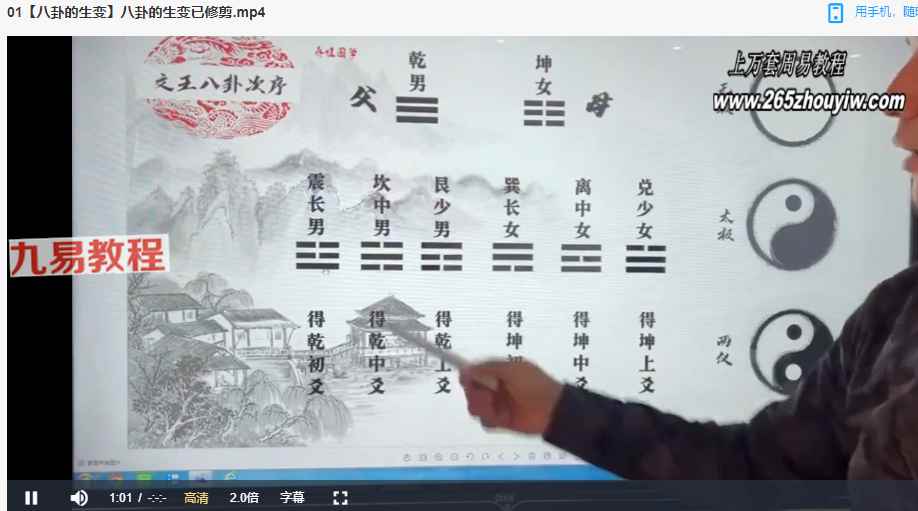 01【八卦的生变】八卦的生变已修剪.mp4
用手机，随
文王八卦次序
父
乾男
坤女
母
上万套周易教程
www.265zhouyiw.com
震长男
坎中男
艮少男
巽长女
离中女
兑少女
太极
九易教程
得乾初爻
得乾中爻
得乾上爻
得坤初
得坤中爻
得坤上爻
两仪
1:01 / -:-:-
高清
2.0倍
字幕